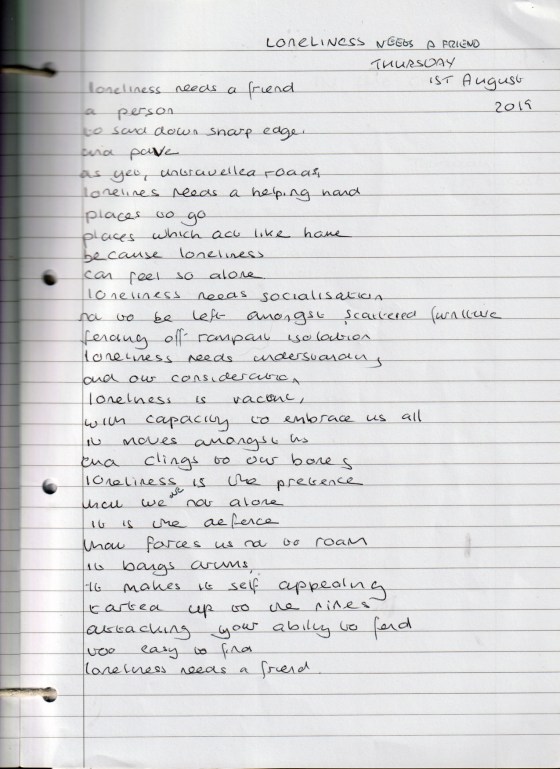 LONELINESS NEEDS A FRIEND
THURSDAY
1ST August
2019
loneliness needs a friend
a person
to sand down sharp edges
and pave
as yet, untravelled roads,
loneliness needs a helping hand
places to go
places which act like home
because loneliness
can feel so alone
loneliness needs socialisation
not to be left amongst scattered furniture
fending off rampant isolation
loneliness needs understanding
and our consideration,
loneliness is vacant,
with capacity to embrace us all
it moves amongst us
and clings to our bones
loneliness is the pretence
that we are not alone
it is the defence
that forces us not to roam
it bangs drums,
it makes it self appealing
tarted up to the nines
attacking your ability to fend
too easy to find
loneliness needs a friend.